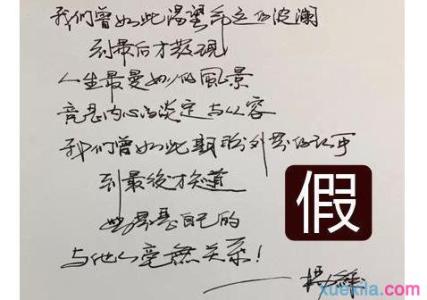 我们曾如此渴望命运的波澜
到最后才发现
人生最曼妙的風景
竟是内心的淡定与从容
我们曾如此期盼外界的认可
到最後才知道
世界是自己的
与他人毫無关系！
——杨絳
假
xuexila.com